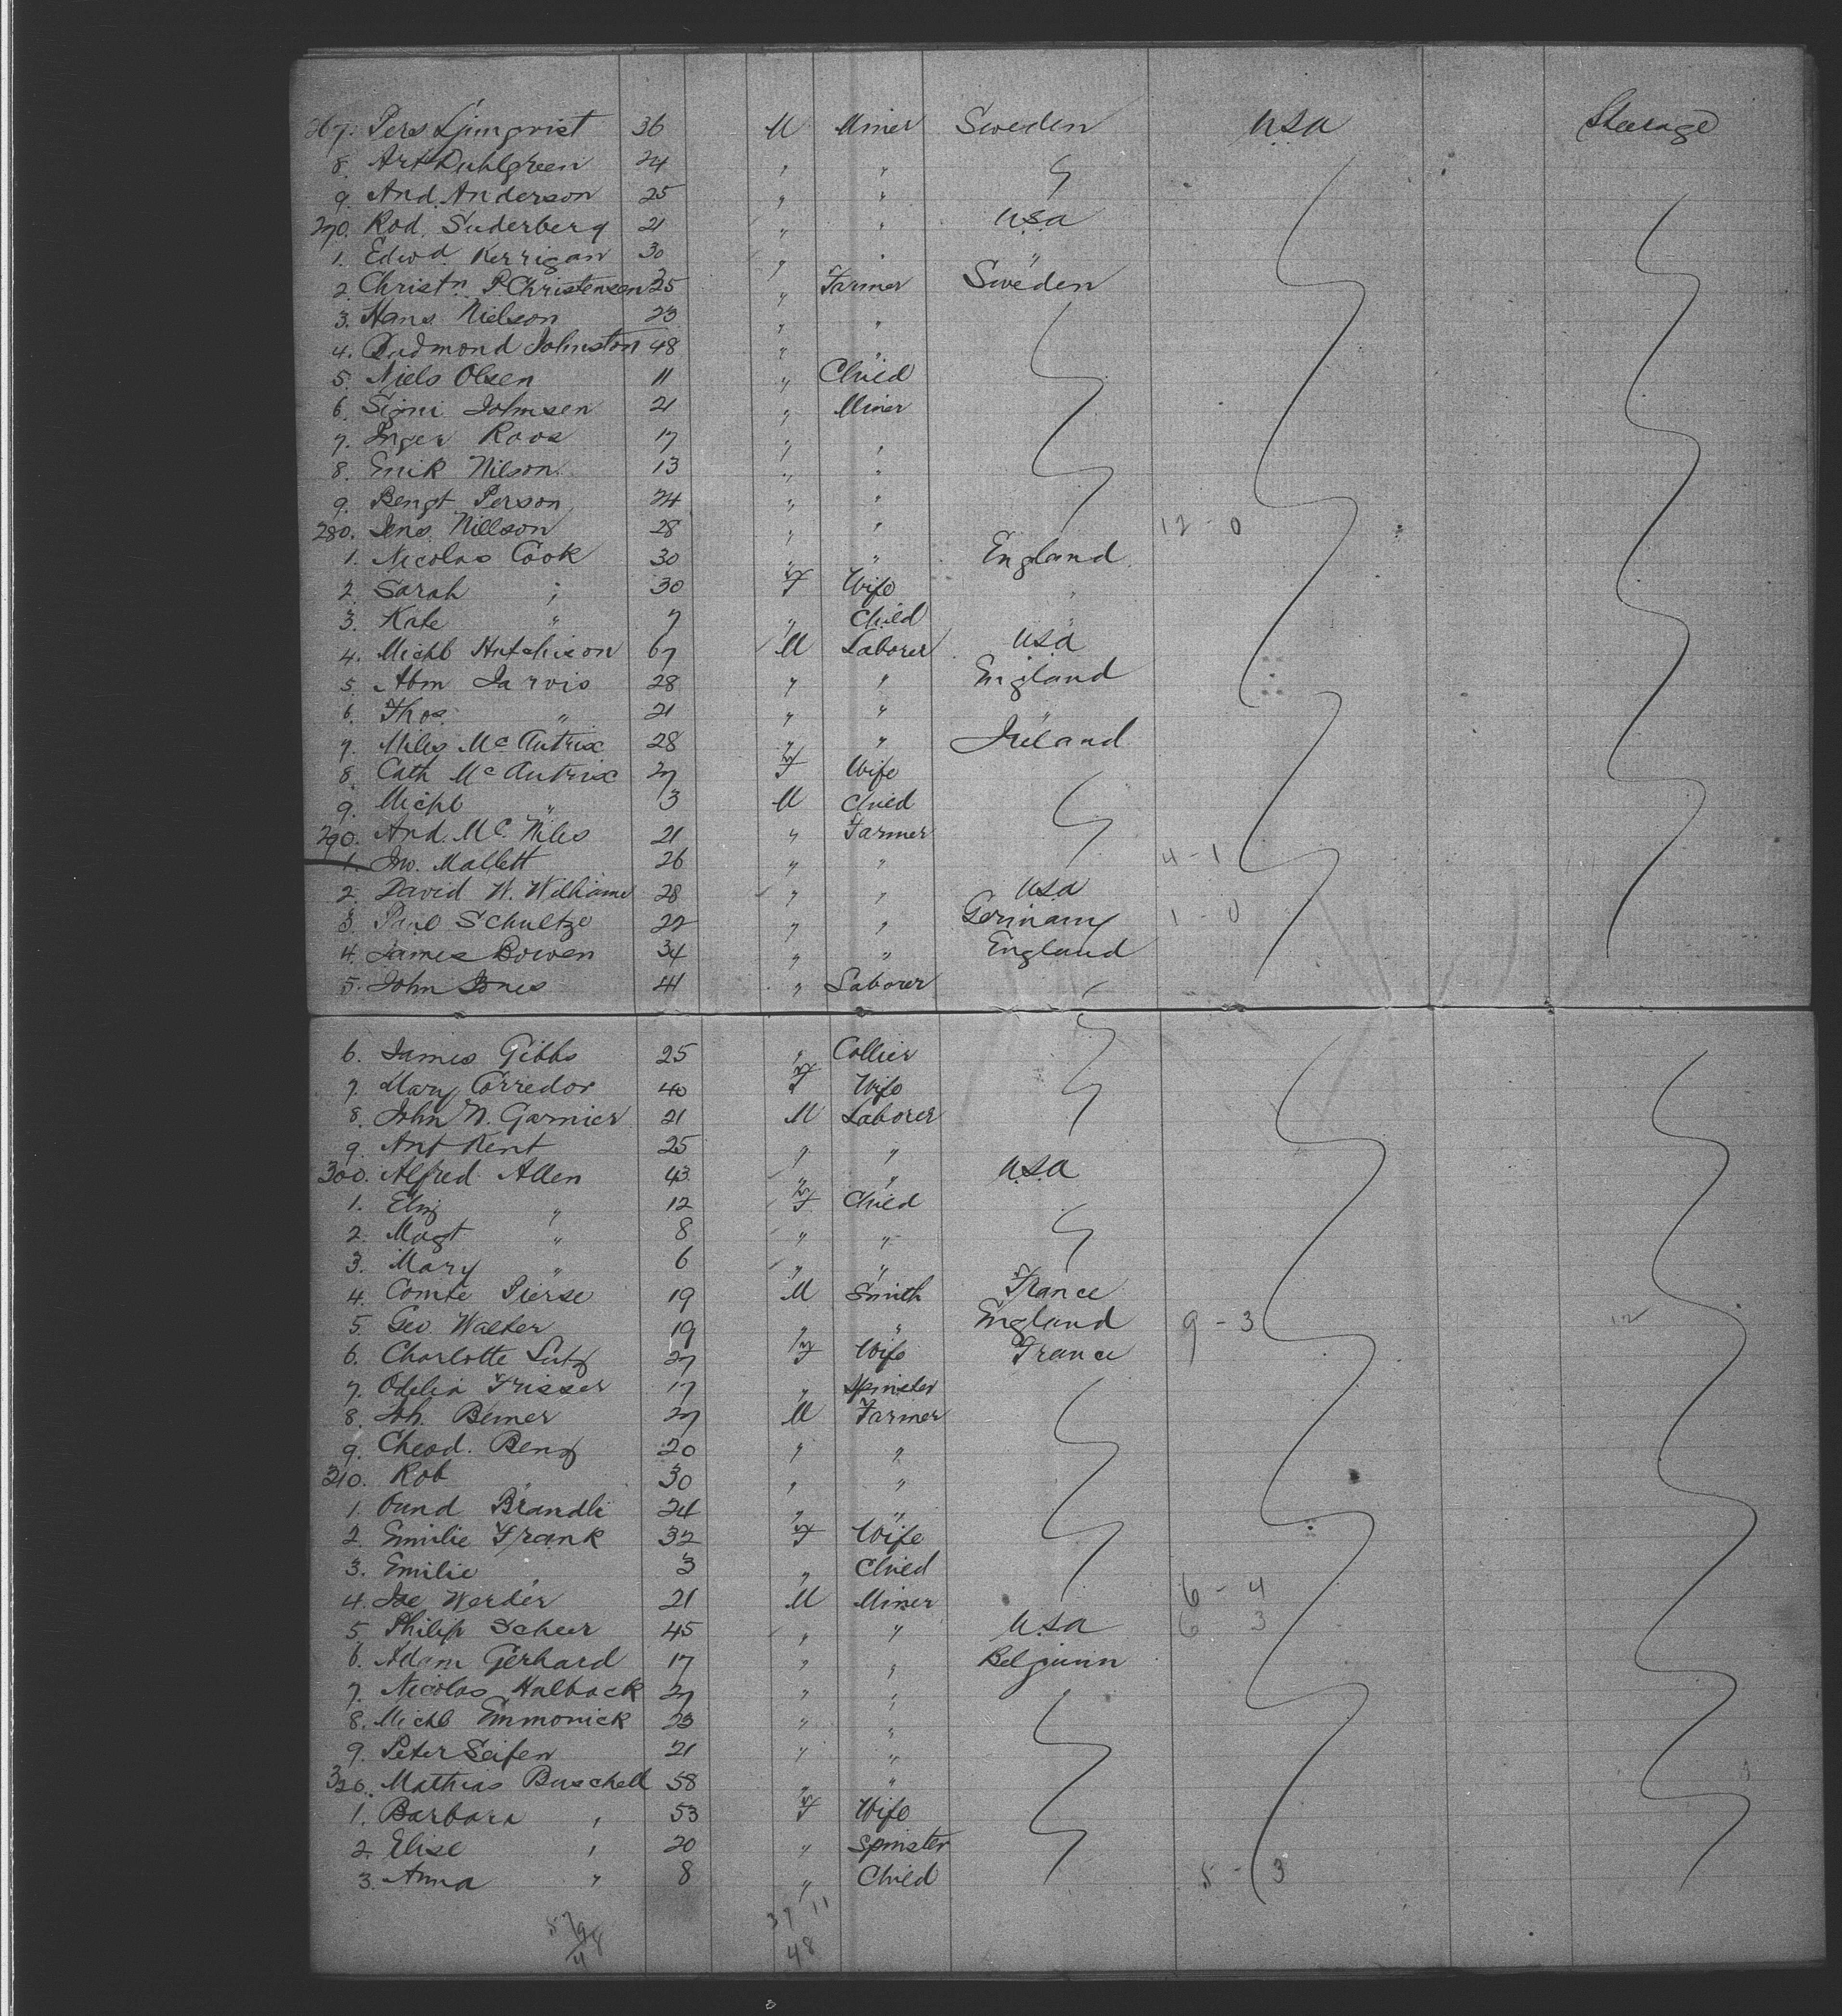 267. Pers Ljungvist 36 M Miner Sweden U.S.A Steerage
8. Art Duhlgreen 24 " "
9. And. Anderson 25 " "
270. Rod. Suderberg 21 " " U.S.A
1. Edwd. Kerrigan 30 " " "
2. Christn. P. Christensen 25 " Farmer Sweden
3. Hans Nielson 23 " "
4. Johnston 48 " "
5. Niels Olsen 11 " Child
6. Signi Johnsen 21 " Miner
7. Inger Roos 17 " "
8. Erik Nilson 13 " "
9. Bengt Person 24 " "
280. Jens Nillson 28 " " 12 - 0
1. Nicolas Cook 30 " " England
2. Sarah " 30 F Wife "
3. Kate " 7 " Child "
4. Michl Hutchison 67 M Laborer U.S.A
5. Abm Jarvis 28 " " England
6. Thos. " 21 " " "
7. Miles Mc Autrix 28 " " Ireland
8. Cath Mc Autrix 27 F Wife
9. Michl " 3 M Child
290. And. Mc. Niles 21 " Farmer
1. Jno. Mallett 26 " " 4 - 1
2. David W. Williams 28 " " U.S.A
3. Paul Schultze 22 " " Germany 1 - 0
4. James Bowen 34 " " England
5. John Jones 41 " Laborer "
6. James Gibbs 25 " Collier
7. Mary Corredor 40 F Wife
8. John W. Garnier 21 M Laborer
9. Ant Kent 25 " "
300. Alfred Allen 43 " " U.S.A
1. Eliz " 12 F Child
2. Magt " 8 " "
3. Mary " 6 " "
4. Comte Pierse 19 M Smith France
5. Geo Walter 19 " " England 9 - 3
6. Charlotte Lutz 27 F Wife France
7. Odelia Frisser 17 " Spinster
8. Joh. Bemer 27 M Farmer
9. Cheod. Benz 20 " "
310. Rob " 30 " "
1. Brandli 24 " "
2. Emilie Frank 32 F Wife
3. Emilie " 3 " Child
4. Joe Werder 21 M Miner 6 - 4
5. Philip Scheer 45 " " U.S.A 6 3
6. Adam Gerhard 17 " " Belgium
7. Nicolas Halback 27 " "
8. Michl Emmonick 23 " "
9. Peter Seifen 21 " "
320. Mathias Buschell 58 " "
1. Barbara " 53 F Wife
2. Elise " 20 " Spinster
3. Anna " 8 " Child 5 - 3
37 11
48